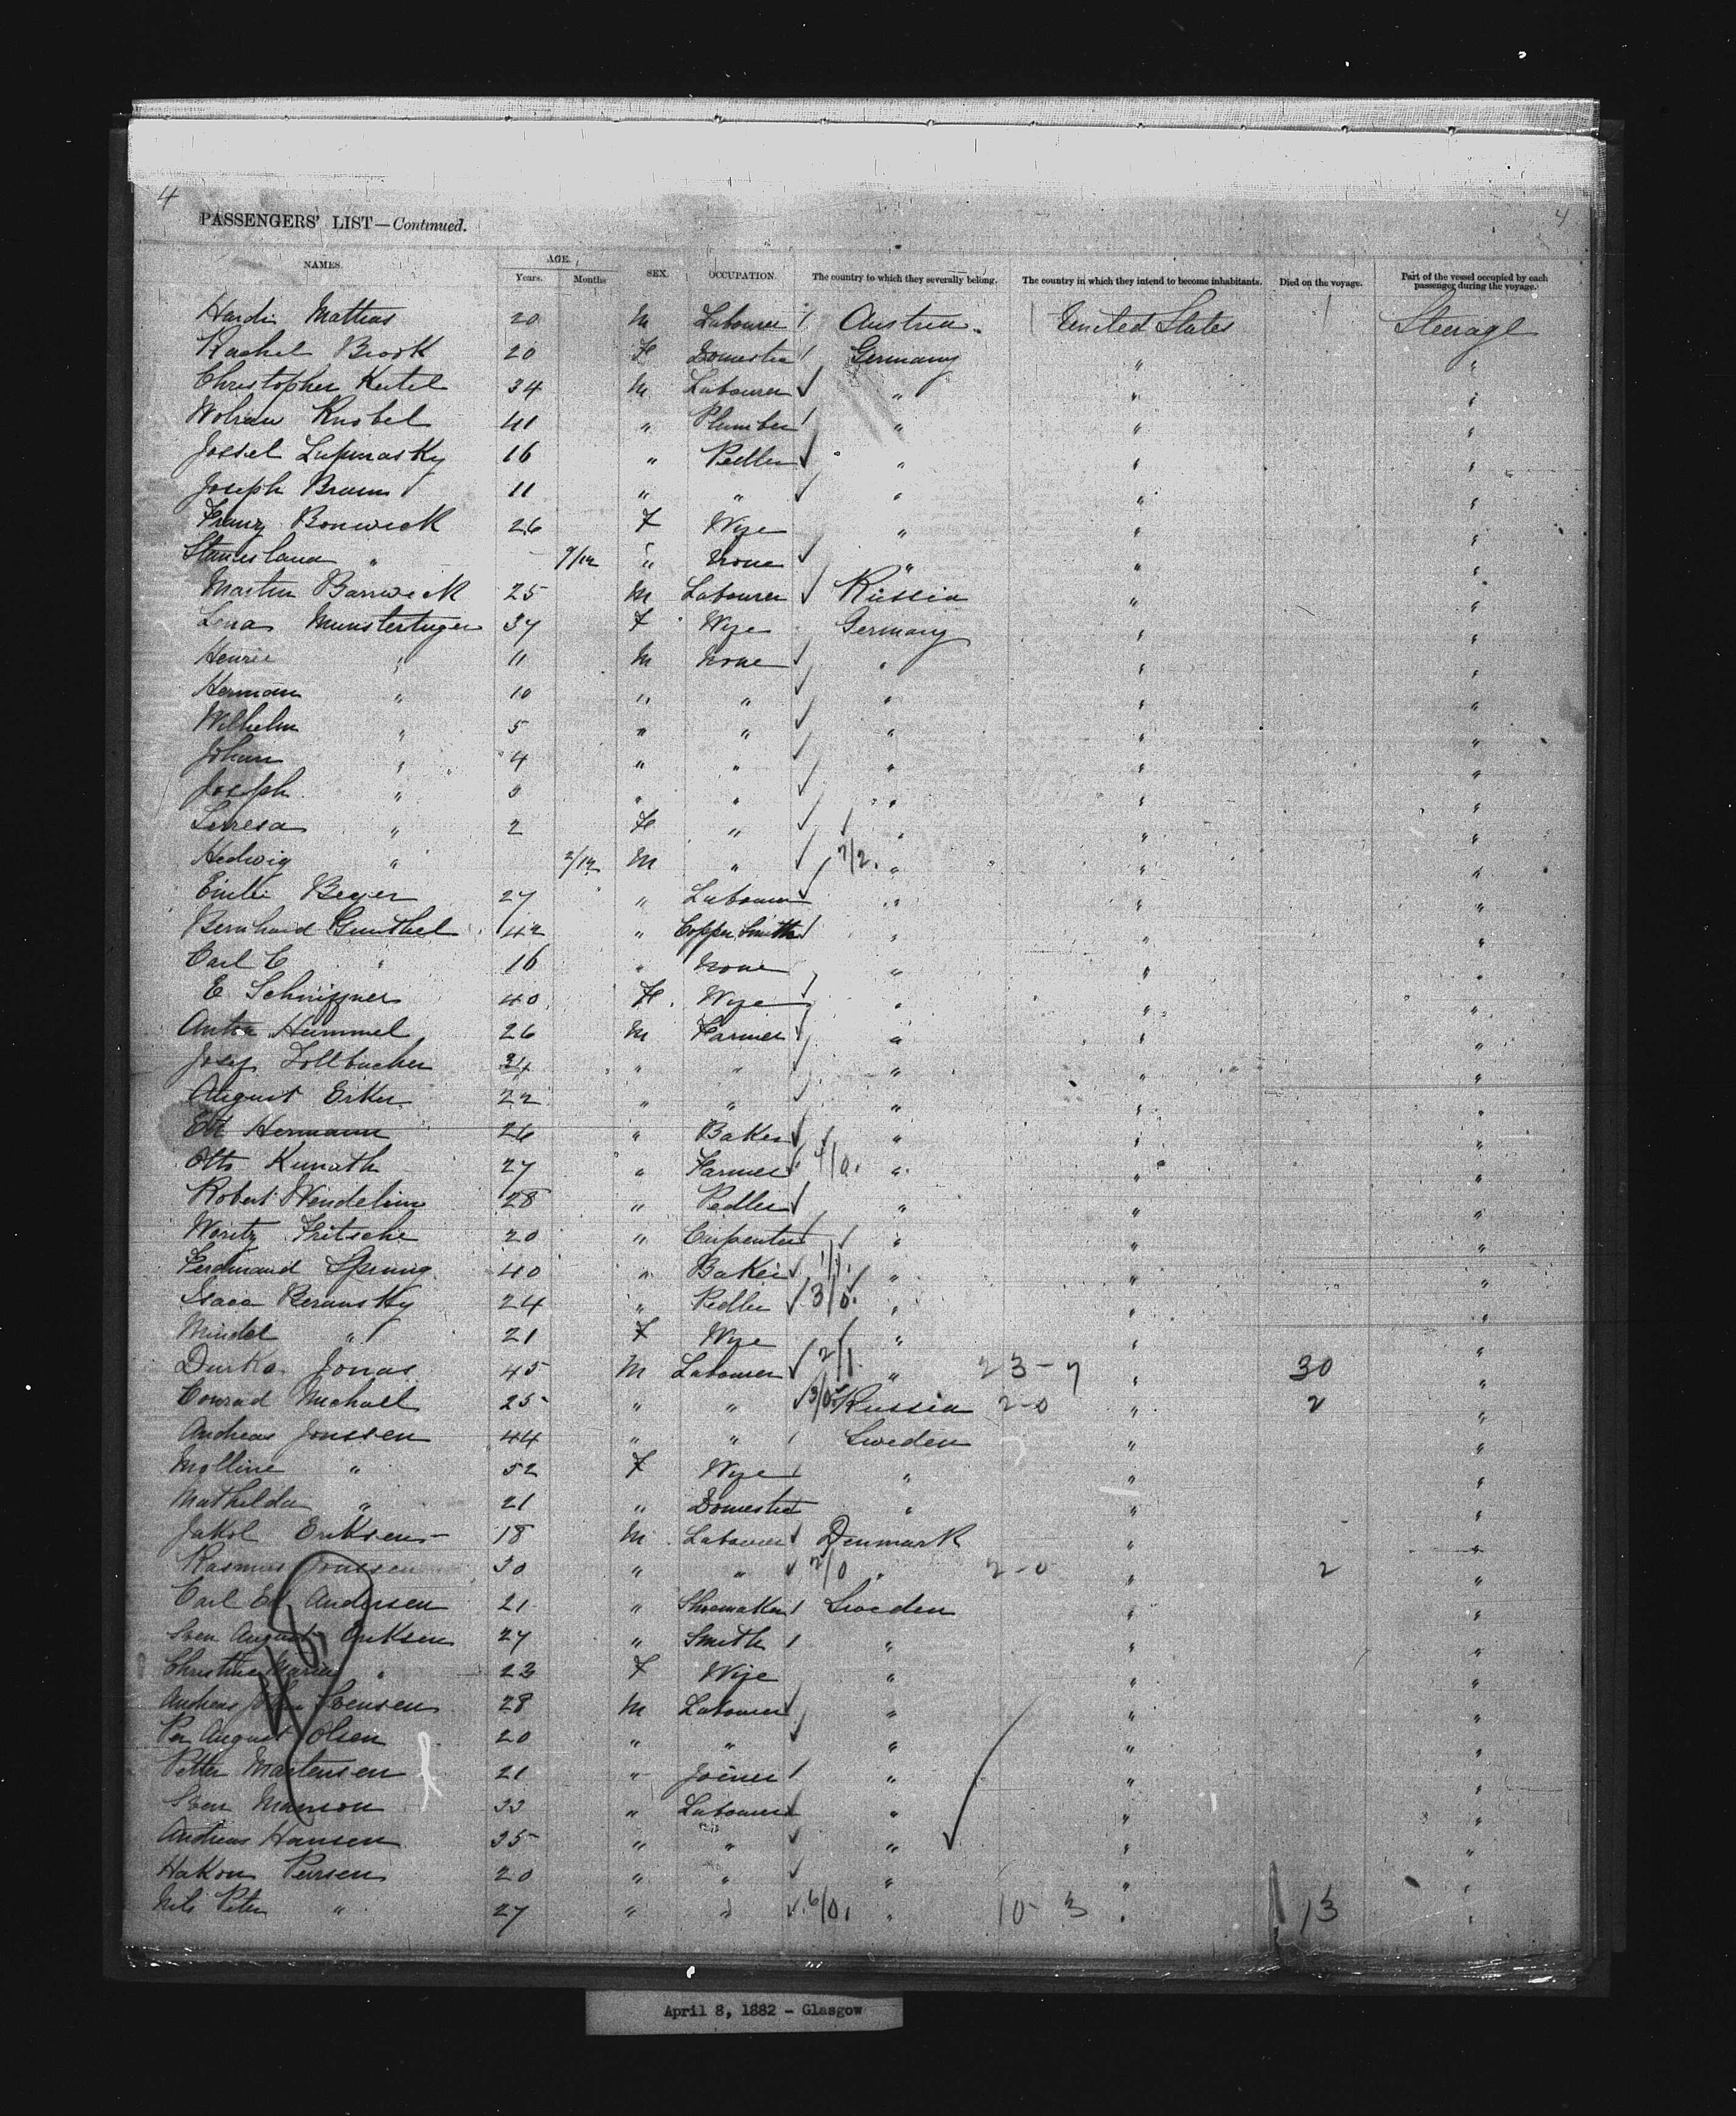 4
4
PASSENGERS' LIST—Continued.
NAMES. AGE. Years. Months SEX. OCCUPATION. The country to which they severally belong. The country in which they intend to become inhabitants. Died on the voyage. Part of the vessel occupied by each passenger during the voyage.
Mathias 20 M Labourer Austria United States Steerage
Rachel Brook 20 F Domestic Germany " "
Christopher Keitel 34 M Labourer " " "
Knobel 41 " Plumber " " "
Jossel Lupinasky 16 " Pedler " " "
Joseph Braun 11 " " " " "
Franz Bonwick 26 F Wife " " "
" 9/12 " None " " "
Martin Barwick 25 M Labourer Russia " "
Lena Munstertuger 37 F Wife Germany " "
Henrie " 11 M None " " "
Hermann " 10 " " " " "
Wilhelm " 5 " " " " "
Johan " 4 " " " " "
Joseph " 3 " " " " "
Terresa " 2 F " " " "
Hedwig " 2/12 M " 7/2. " " "
Emilie Beyer 27 " Labourer " " "
Bernhard Gunthel 42 " Copper Smith " " "
Carl C " 16 " None " " "
E 40 F. Wife " " "
Anton Hummel 26 M Farmer " " "
Josef Zollbucher 24 " " " " "
August Erker 22 " " " " "
Hermann 26 " Baker " " "
Otto Kunath 27 " Farmer 4/0. " " "
Robert Wendelin 28 " Pedler " " "
Moritz Fritsche 20 " Carpenter " " "
Ferdinand Sprung 40 " Baker 1/1. " " "
Isaac Beransky 24 " Pedler 3/0. " " "
Mindel " 21 F Wife " " "
Durka Jonas 45 M Labourer 2/1. " 23-7 " 30 "
Conrad Michael 25 " " 3/0 Russia 2-0 " 2 "
Andreas Jonssen 44 " " Sweden " "
Molline " 52 F Wife " " "
Mathilda " 21 " Domestic " " "
Jakob Eriksen 18 M Labourer Denmark " "
Rasmus Jonssen 30 " " 2/0 " 2-0 " 2 "
Carl Ed Andersen 21 " Shoemaker Sweden " "
Sven August Eriksen 27 " Smith " " "
Christine Maria " 23 F Wife " " "
Andreas John Svensen 28 M Labourer " " "
Per August Olsen 20 " " " " "
Petter Martensen 21 " Joiner " " "
Sven Manson 33 " Labourer " " "
Andreas Hansen 35 " " " " "
Hakon Persen 20 " " " " "
Nils Peter " 27 " " 6/0. " 10-3 " 13 "
April 8, 1882 - Glasgow